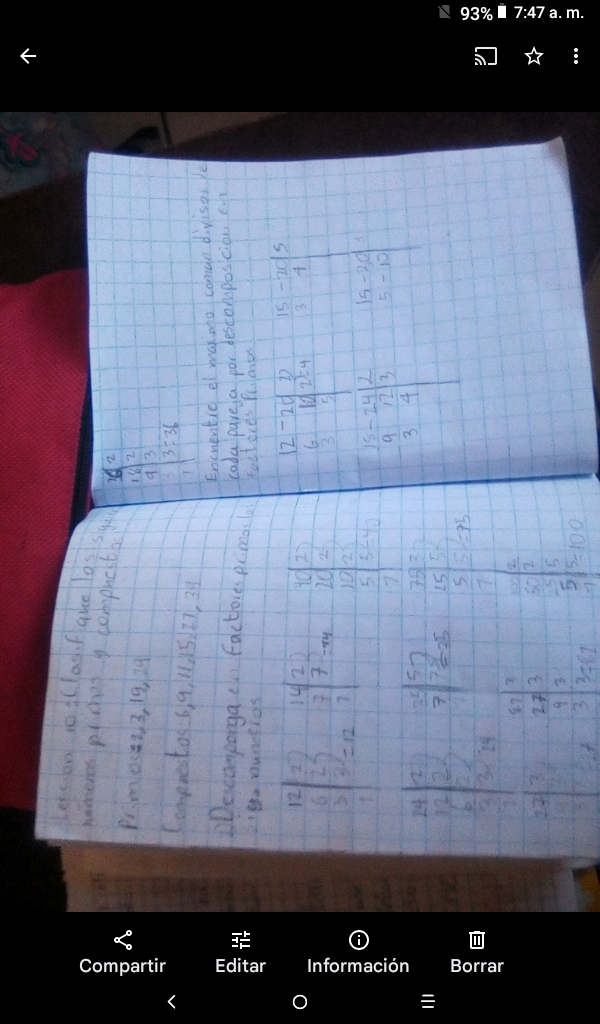 93% 7:47 a. m.
números primos y compuestos
Primos=2,3,19,29
Compuestos 6,9,11,15,27,39
2) Descomponga en factores primos los
sig. numeros
12 | 2 14 | 2 40 | 2
6 | 2 7 | 7 =14 20 | 2
3 | 3 =12 1 10 | 2
1 5 | 5 =40
1
24 | 2 35 | 5 75 | 3
12 | 2 7 | 7 =35 25 | 5
6 | 2 1 5 | 5 =75
3 | 3 =24 1
1
27 | 3 81 | 3 100 | 2
9 | 3 27 | 3 50 | 2
9 | 3 25 | 5
3 | 3 =81 5 | 5 =100
1
36 | 2
18 | 2
9 | 3
3 | 3 =36
1
Encuentre el maximo comun divisor de
cada pareja por descomposicion en
factores Primos
12 - 20 | 2 15 - 20 | 5
6 10 | 2=4 3 4
3 5
18 - 24 | 2 15 - 20
9 12 | 3 5 - 10
3 4
Compartir Editar Información Borrar